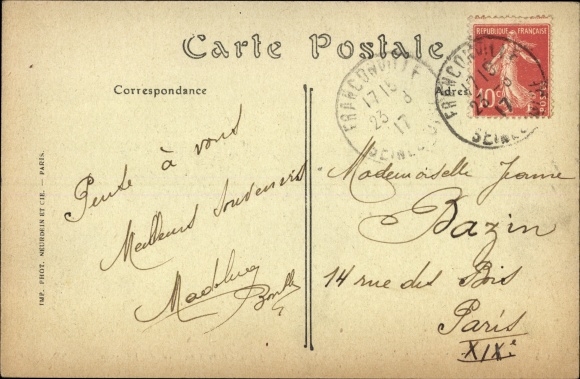 Carte Postale
Correspondance
Adres
REPUBLIQUE FRANÇAISE
10c
POSTES
FRANCONVILLE
17 15
23 - 8
17
SEINE
FRANCONVILLE
17 15
23 - 8
17
SEINE
Pense à vous
Meilleurs Souvenirs
Mademoiselle Jeanne
Bazin
14 rue des Bois
Paris
XIXe
IMP. PHOT. NEURDEIN ET CIE. — PARIS.